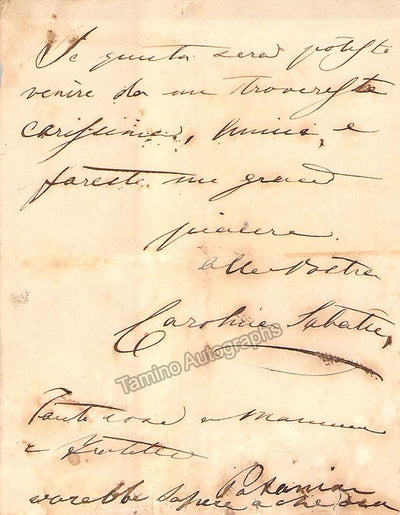 Se questa sera poteste
venire da me trovereste
carissima, Annina, e
fareste un grand
piacere.
alla Vostra
Caroline Sabatier
Tamino Autographs
Tante cose a Mamma
e Fratello
vorebbe sapere a che ora